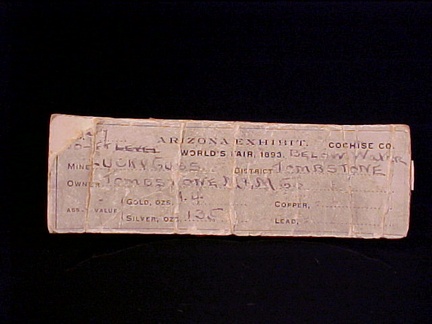 ARIZONA EXHIBIT. COCHISE CO.
LEVEL WORLD'S FAIR, 1893. BELOW WATER
MINE LUCKY CUSS DISTRICT TOMBSTONE
OWNER TOMBSTONE M. & M. Co
GOLD, OZS. .4 COPPER,
ASSAY VALUE
SILVER, OZS. 125 LEAD,